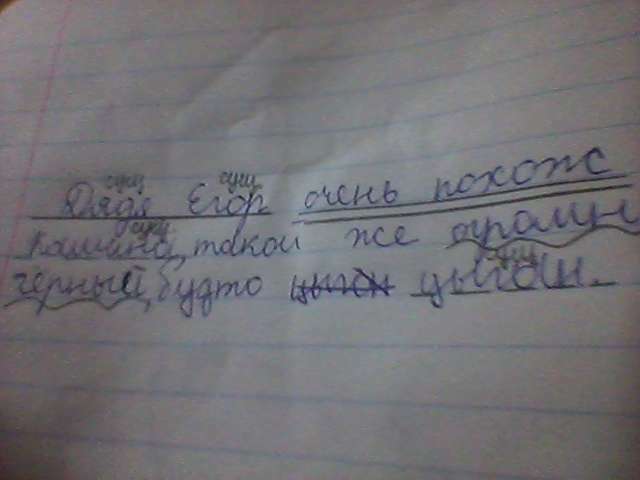 сущ сущ
Дядя Егор очень похож
сущ
Кашина, такой же огромн
сущ
черный, будто цыган цыган.